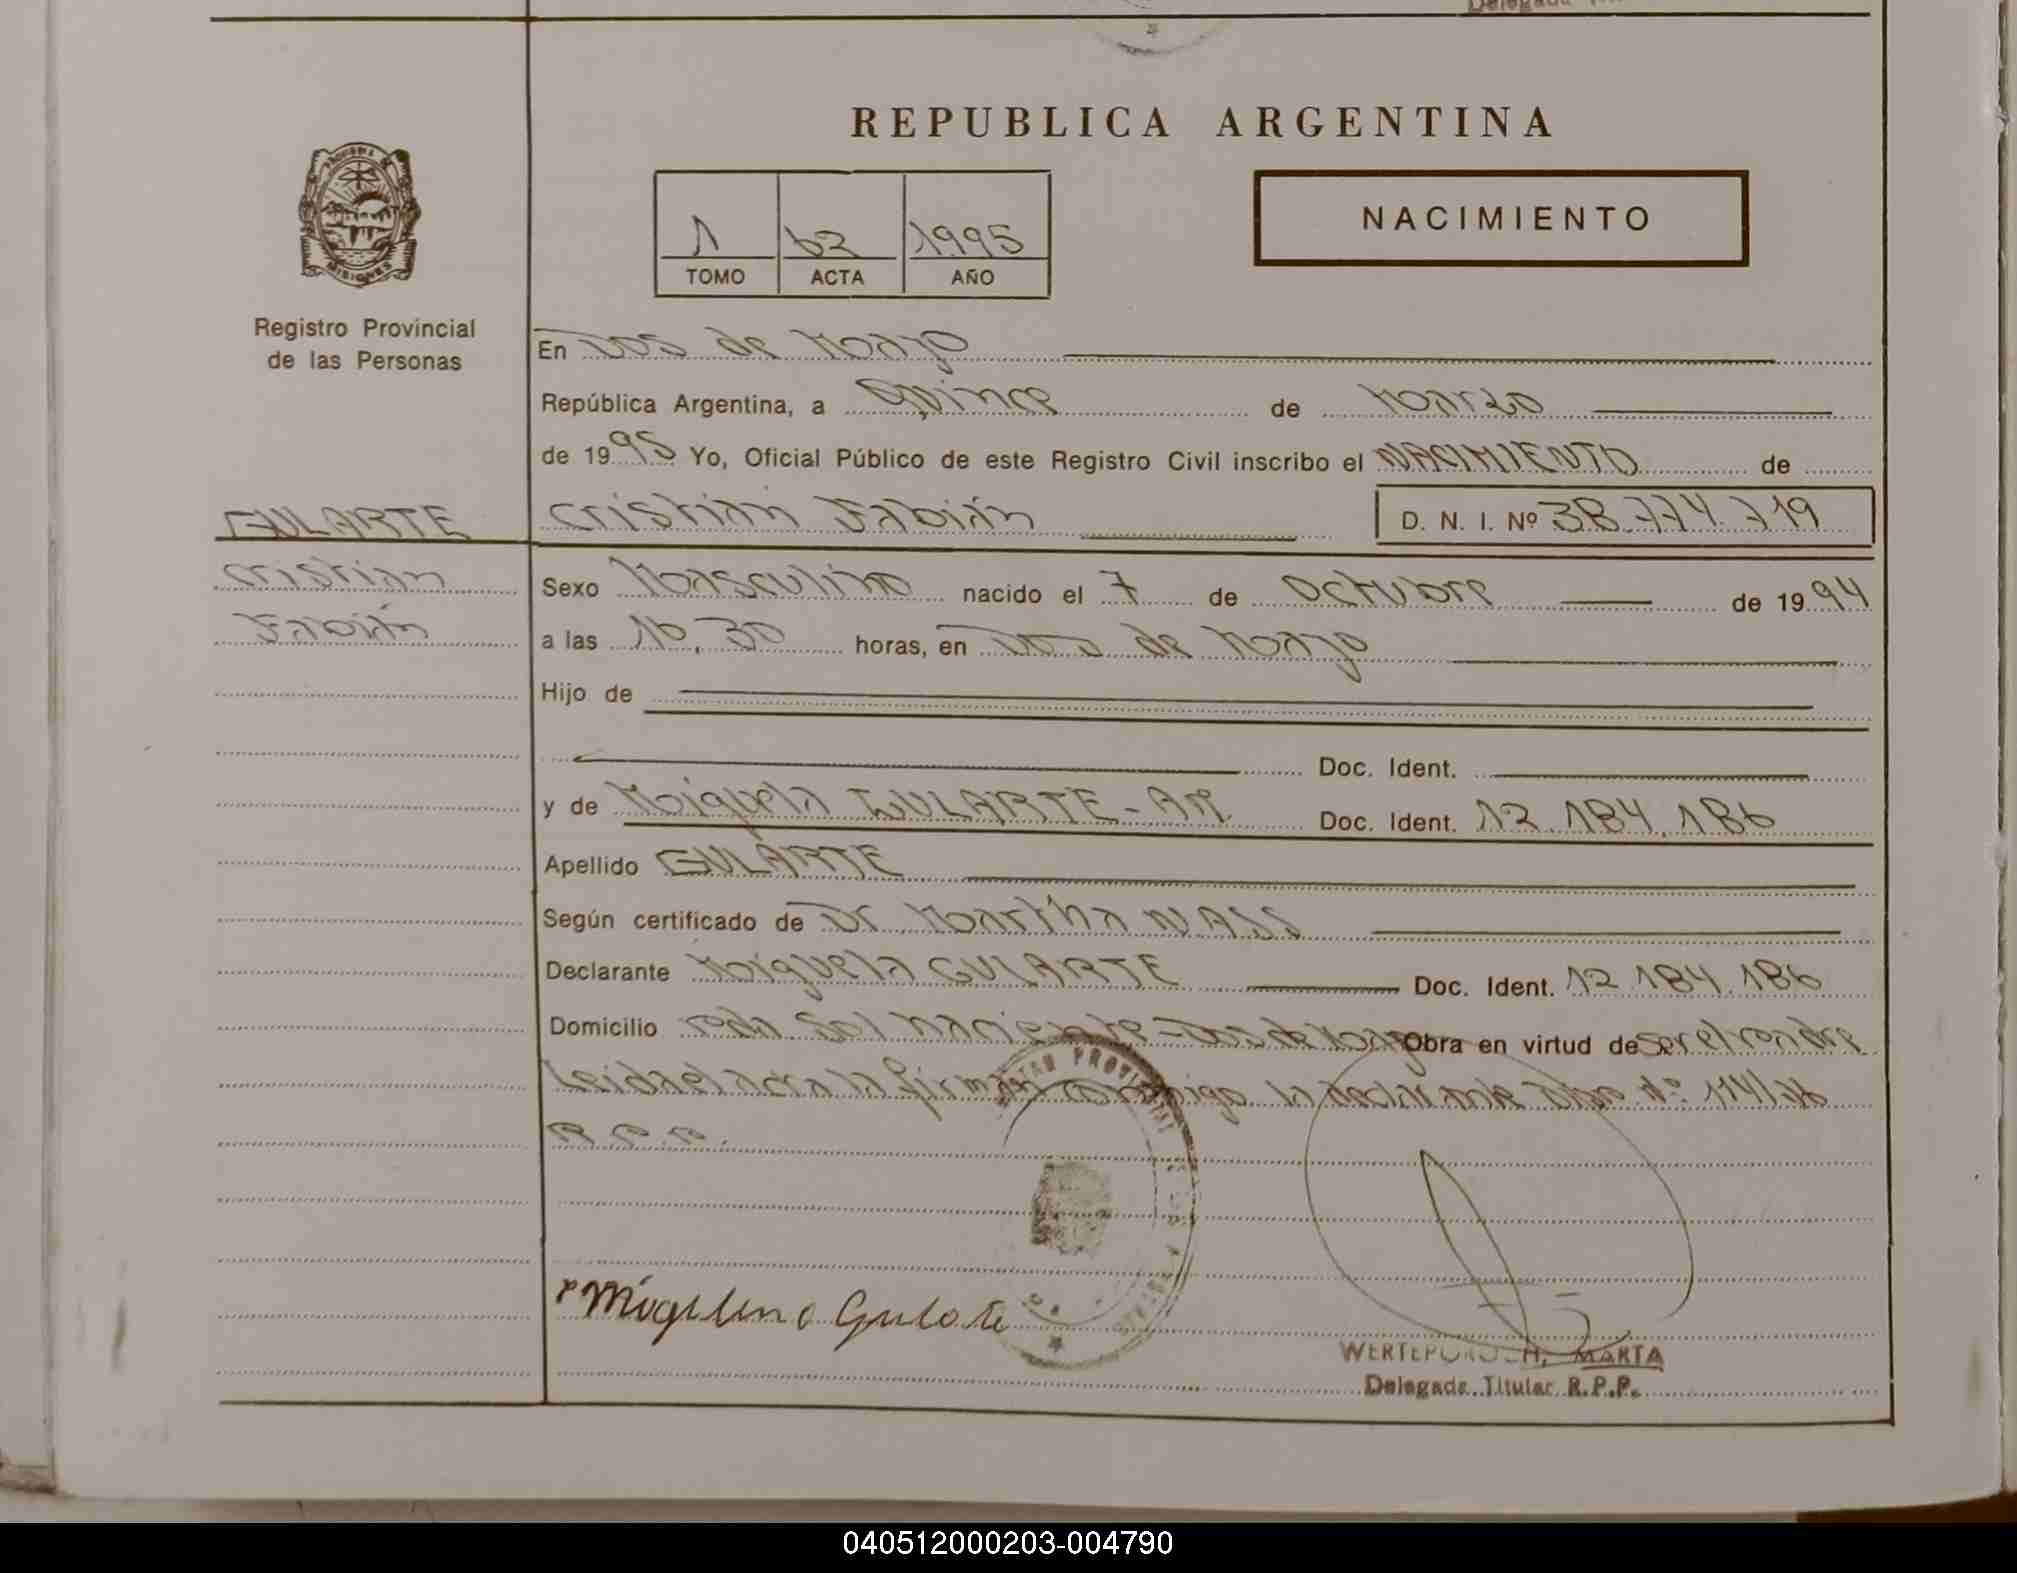 REPUBLICA ARGENTINA
PROVINCIA DE MISIONES
Registro Provincial
de las Personas
1 62 1995
TOMO ACTA AÑO
NACIMIENTO
En Dos de Mayo
República Argentina, a Quince de Marzo
de 1995 Yo, Oficial Público de este Registro Civil inscribo el NACIMIENTO de
GULARTE Cristian Fabián D. N. I. Nº 38.774.719
Cristian Sexo Masculino nacido el 7 de Octubre de 1994
Fabián a las 16,30 horas, en Dos de Mayo
Hijo de
Doc. Ident.
y de Miguela GULARTE - AR Doc. Ident. 12.184.186
Apellido GULARTE
Según certificado de Dr. Martha NASS
Declarante Miguela GULARTE Doc. Ident. 12.184.186
Domicilio Sol naciente - Dos de Mayo Obra en virtud de ser el
Leida el acta la firman conmigo la declarante Nº 114/
R.P.P.
Gularte
MARTA
Delegada Titular R.P.P.
040512000203-004790